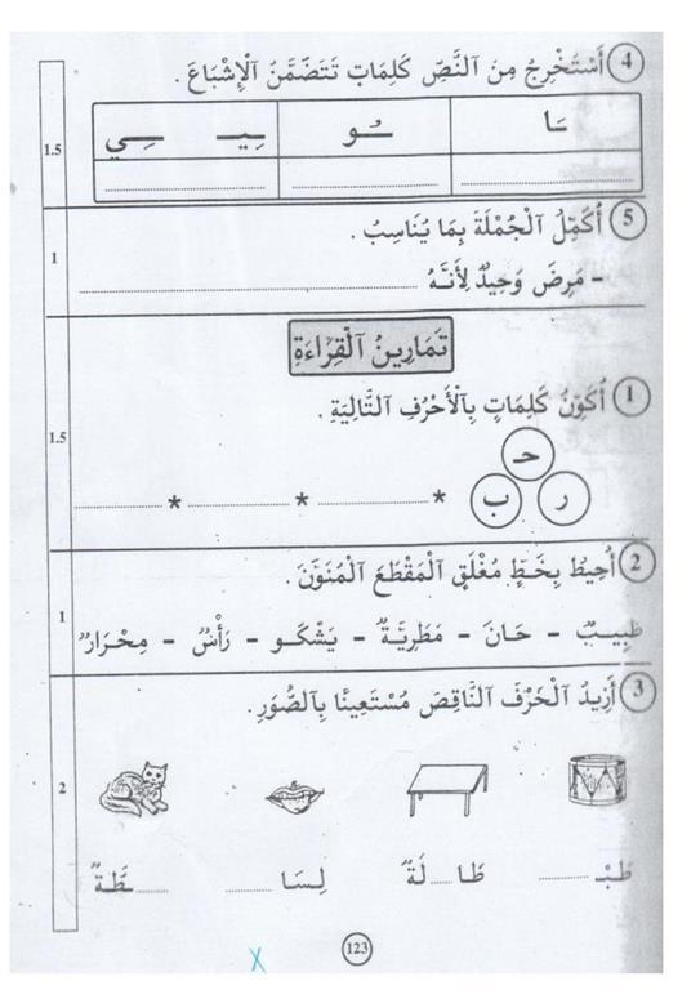 4 أَسْتَخْرِجُ مِنَ ٱلنَّصِّ كَلِمَاتٍ تَتَضَمَّنُ ٱلْإِشْبَاعَ .
ـَا ـُـو ـِيـ ـِـي
1.5
5 أُكَمِّلُ ٱلْجُمْلَةَ بِمَا يُنَاسِبُ .
1
- مَرِضَ وَحِيدٌ لِأَنَّهُ ....................
تَمَارِينُ ٱلْقِرَاءَةِ
1 أُكَوِّنُ كَلِمَاتٍ بِٱلْأَحْرُفِ ٱلتَّالِيَةِ .
1.5
حـ
ر ب * .................... * .................... * ....................
2 أُحِيطُ بِخَطٍّ مُغْلَقٍ ٱلْمَقْطَعَ ٱلْمُنَوَّنَ .
1
طَبِيـبٌ - حَـانَ - مَطَرِيَّـةٌ - يَشْكُـو - رَأْسٌ - مِحْـرَارٌ
3 أَزِيدُ ٱلْحَرْفَ ٱلنَّاقِصَ مُسْتَعِينًا بِٱلصُّوَرِ .
2
طَبْـ ........ طَا .... لَةٌ لِـسَـا ........ ......ـطَّةٌ
123
X